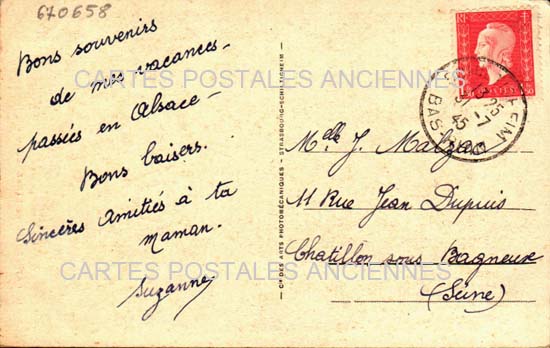 670658
Bons souvenirs
de mes vacances
passées en Alsace
Bons baisers.
Sincères Amitiés à ta
maman.
Suzanne
CARTES POSTALES ANCIENNES
CARTES POSTALES ANCIENNES
Cie DES ARTS PHOTOMÉCANIQUES - STRASBOURG-SCHILTIGHEIM -
RF
POSTES
EIM
BAS-RHIN
Melle J. Malzan
11 Rue Jean Dupuis
Chatillon sous Bagneux
(Seine)